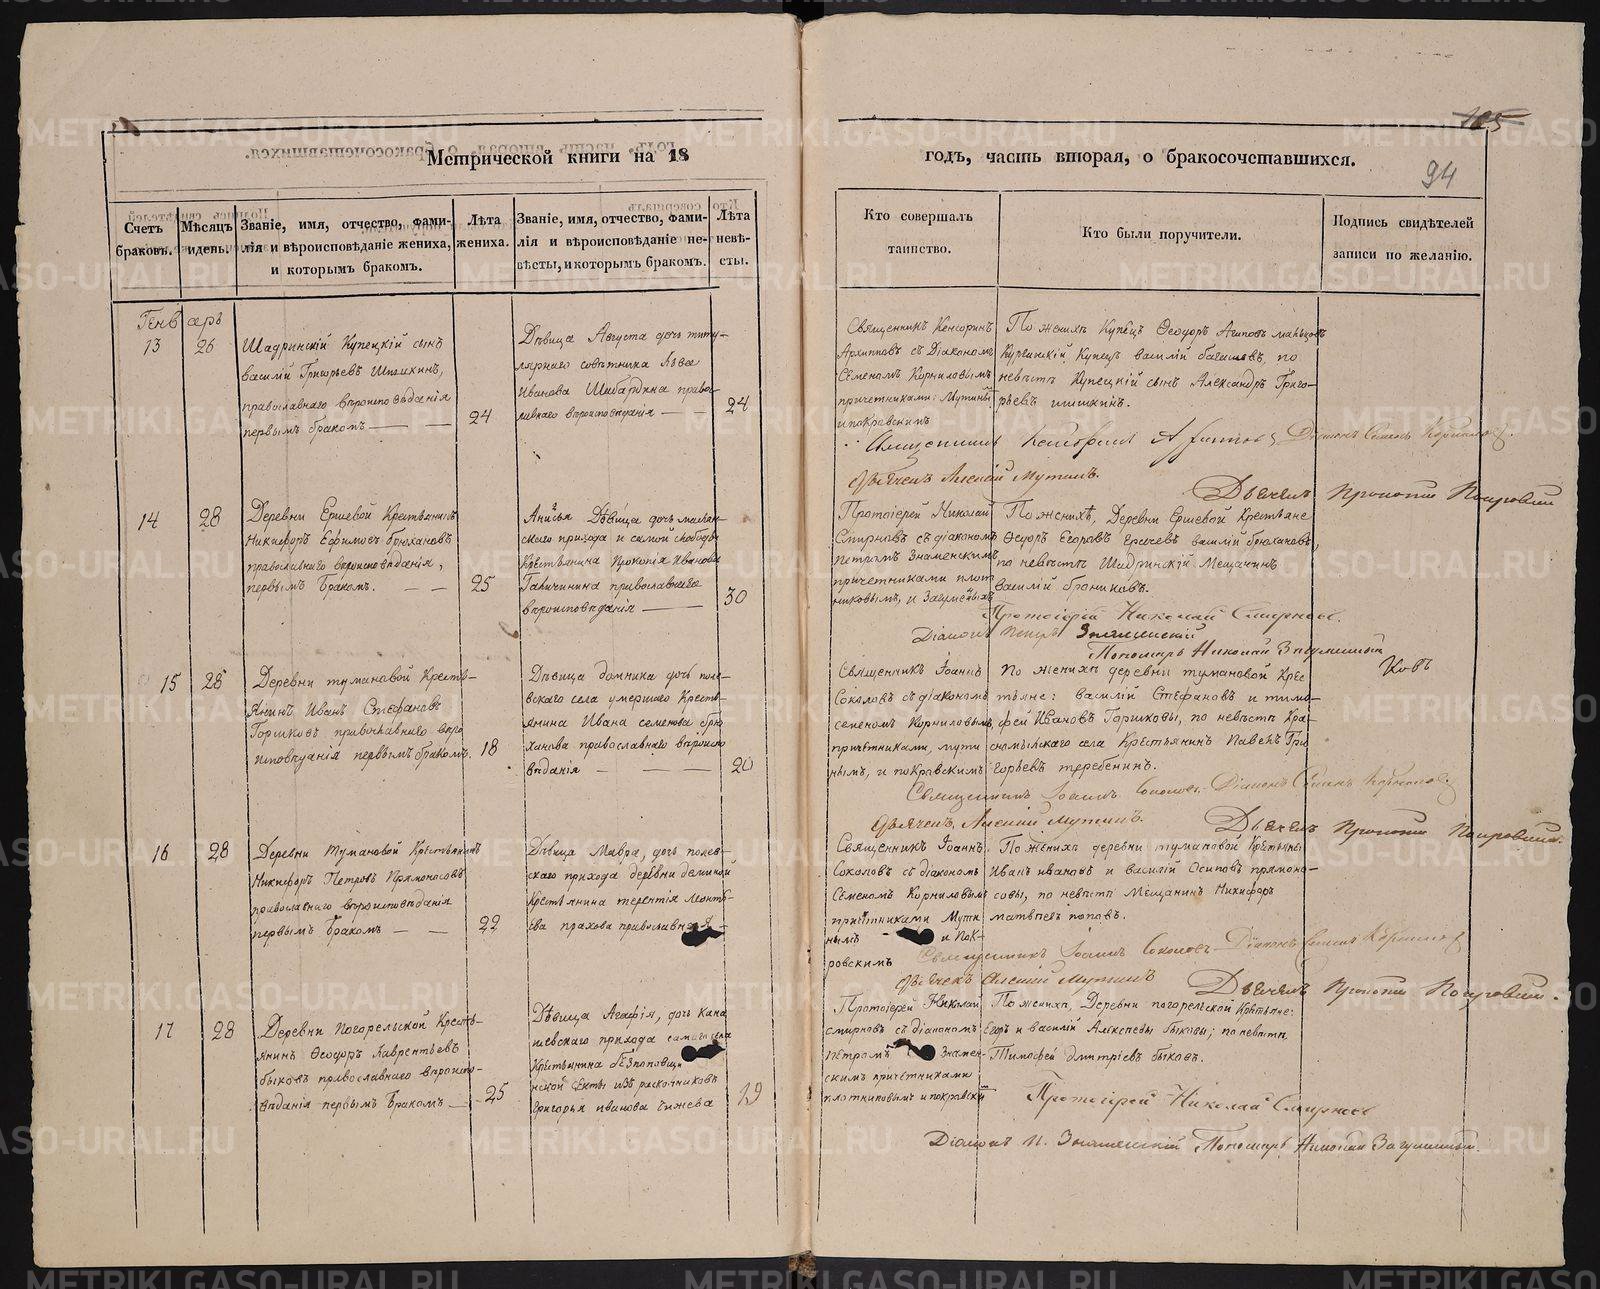 105
94
Метрической книги на 18
годъ, часть вторая, о бракосочетавшихся.
Счетъ браковъ.
Мѣсяцъ и день.
Званіе, имя, отчество, фамилія и вѣроисповѣданіе жениха, и которымъ бракомъ.
Лѣта жениха.
Званіе, имя, отчество, фамилія и вѣроисповѣданіе невѣсты, и которымъ бракомъ.
Лѣта невѣсты.
Кто совершалъ таинство.
Кто были поручители.
Подпись свидѣтелей записи по желанію.
Генварь
13
26
Шадринскій Купецкій сынъ
Василій Григорьевъ Шишкинъ,
православнаго вѣроисповѣданія
первымъ бракомъ
24
Дѣвица Августа дочь титу-
лярнаго совѣтника Льва
Иванова
православнаго вѣроисповѣданія
24
Священникъ Кенсоринъ
Архипповъ съ Діакономъ
Семеномъ Корниловымъ
причетниками: Мутинымъ
и покравскимъ
По женихѣ Купецъ Ѳеодоръ
Купецъ василій по
невѣстѣ Купецкій сынъ Александръ Григо-
рьевъ шишкинъ.
Священникъ Кенсоринъ Архипповъ Діаконъ Семенъ Корниловъ
Дьячекъ Алексій Мутинъ.
Дьячекъ Прокопій Покровскій
14
28
Деревни Ершевой Крестьянинъ
Никифоръ Ефимовъ Брюхановъ
православнаго вѣроисповѣданія,
первымъ Бракомъ.
25
Анисья Дѣвица дочь
скаго прихода и самой слободы
Крестьянина Прокопія Иванова
православнаго
вѣроисповѣданія
30
Протоіерей Николай
Смирновъ съ діакономъ
петромъ Знаменскимъ
причетниками плот
никовымъ, и
По женихѣ, Деревни Ершевой Крестьяне
Ѳедоръ Егоровъ василій брюхановъ,
по невѣстѣ Шадринскій Мещанинъ
василій
Протоіерей Николай Смирновъ.
Діаконъ Петръ Знаменскій
Пономарь Николай
15
28
Деревни тумановой Кресть-
янинъ Иванъ Стефановъ
Горшковъ православнаго вѣро
исповѣданія первымъ бракомъ.
18
Дѣвица домника дочь поле-
вскаго села умершаго Кресть-
янина Ивана семенова брю
ханова православнаго вѣроиспо
вѣданія
20
Священникъ Іоаннъ
Соколовъ съ діакономъ
семеномъ Корниловымъ,
причетниками, мути
нымъ, и покравскимъ
По женихѣ деревни тумановой Кре
стьяне: василій Стефановъ и тимо-
фей Ивановъ Горшковы, по невѣстѣ Кра-
сномыльскаго села Крестьянинъ Павелъ Гри
горьевъ теребенинъ.
Священникъ Іоаннъ Соколовъ. Діаконъ Семенъ Корниловъ
Дьячекъ, Алексій Мутинъ.
Дьячекъ Прокопій Покровскій.
16
28
Деревни Тумановой Крестьянинъ
Никифоръ Петровъ Прямоносовъ
православнаго вѣроисповѣданія
первымъ бракомъ
22
Дѣвица Мавра, дочь полев-
скаго прихода деревни деминой
Крестьянина терентія леонть-
ева прахова православной
Священникъ Іоаннъ
Соколовъ съ діакономъ
Семеномъ Корниловымъ
причетниками Мути
нымъ и Пок-
ровскимъ
По женихѣ деревни тумановой Крестьяне
Иванъ ивановъ и василій Осиповъ прямоно-
совы, по невѣстѣ Мещанинъ Никифоръ
матвѣевъ поповъ.
Священникъ Іоаннъ Соколовъ Діаконъ Семенъ Корниловъ
Дьячекъ Алексій Мутинъ
Дьячекъ Прокопій Покровскій.
17
28
Деревни Погорельской Кресть-
янинъ Ѳеодоръ Лаврентьевъ
быковъ православнаго вѣроиспо-
вѣданія первымъ Бракомъ
25
Дѣвица Агафія, дочь Кана
шевскаго прихода самаго села
Крестьянина безпоповщи
нской секты изъ раскольниковъ
Григорья иванова Чижева
19
Протоіерей Николай
смирновъ съ діакономъ
петромъ Знамен-
скимъ причетниками
плотниковымъ и покравски
По женихѣ, Деревни погорельской Крестьяне:
Егоръ и василій Алексѣевы быковы; по невѣстѣ,
Тимофей дмитріевъ быковъ.
Протоіерей Николай Смирновъ
Діаконъ П. Знаменскій Пономарь Николай